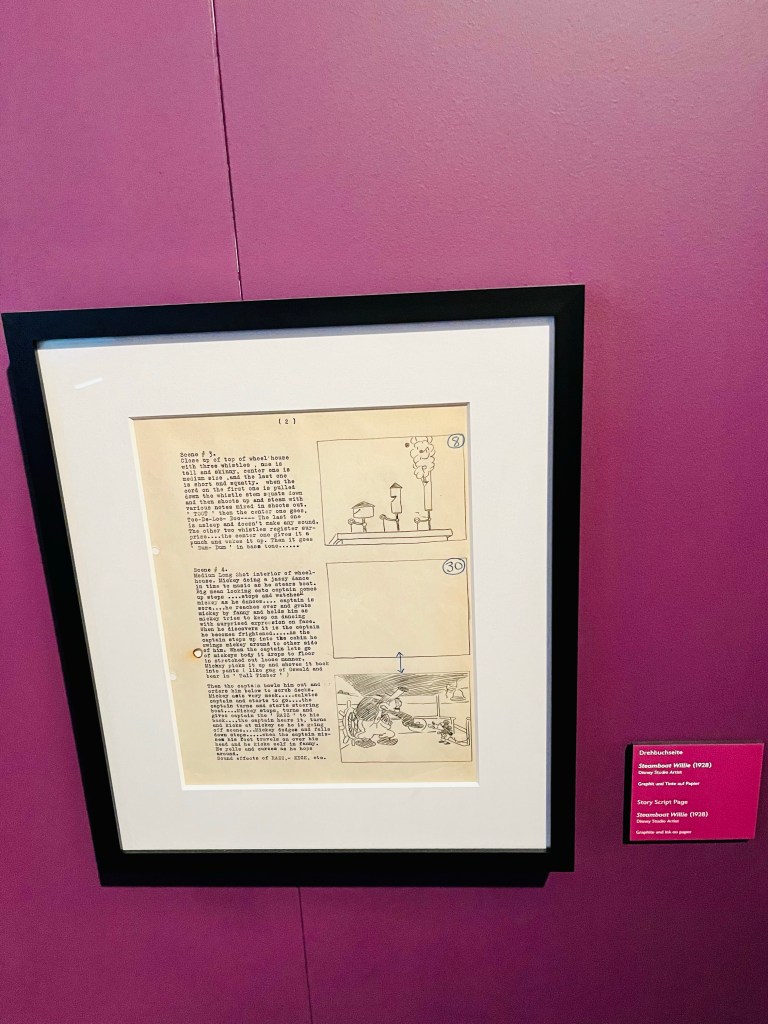 ( 2 )
Scene # 3.
Close up of top of wheel house
with three whistles , one is
tall and skinny, center one is
medium size ,and the last one
is short and squatty. when the
cord on the first one is pulled
down the whistle stem squats down
and then shoots up and steam with
various notes mixed in shoots out.
' TOOT ' then the center one goes,
Too-De-Loo- Doo---- The last one
is asleep and doesn't make any sound.
The other two whistles register sur-
prise....the center one gives it a
punch and wakes it up. Then it goes
' Dum- Dum ' in base tone......
8
Scene # 4.
Medium Long Shot interior of wheel-
house. Mickey doing a jazzy dance
in time to music as he steers boat.
Big mean looking cate captain comes
up steps ....stops and watches
mickey as he dances.... captain is
sore....he reaches over and grabs
mickey by fanny and holds him as
mickey tries to keep on dancing
with surprised expression on face.
When he discovers it is the captain
he becomes frightened.....As the
captain steps up into the cabin he
swings mickey around to other side
of him. When the captain lets go
of mickeys body it drops to floor
in stretched out loose manner.
Mickey picks it up and shoves it back
into pants ( like gag of Oswald and
bear in ' Tall Timber ' )
30
Then the captain bawls him out and
orders him below to scrub decks.
Mickey acts very meek.....salutes
captain and starts to go....the
captain turns and starts steering
boat....Mickey stops, turns and
gives captain the ' RAZZ ' to his
back....the captain hears it, turns
and kicks at mickey as he is going
off scene....Mickey dodges and falls
down steps.....when the captain mis-
ses his foot travels on over his
head and he kicks self in fanny.
He yells and curses as he hops
around.
Sound effects of RAZZ,- KICK, etc.
Drehbuchseite
Steamboat Willie (1928)
Disney Studio Artist
Graphit und Tinte auf Papier
Story Script Page
Steamboat Willie (1928)
Disney Studio Artist
Graphite and ink on paper